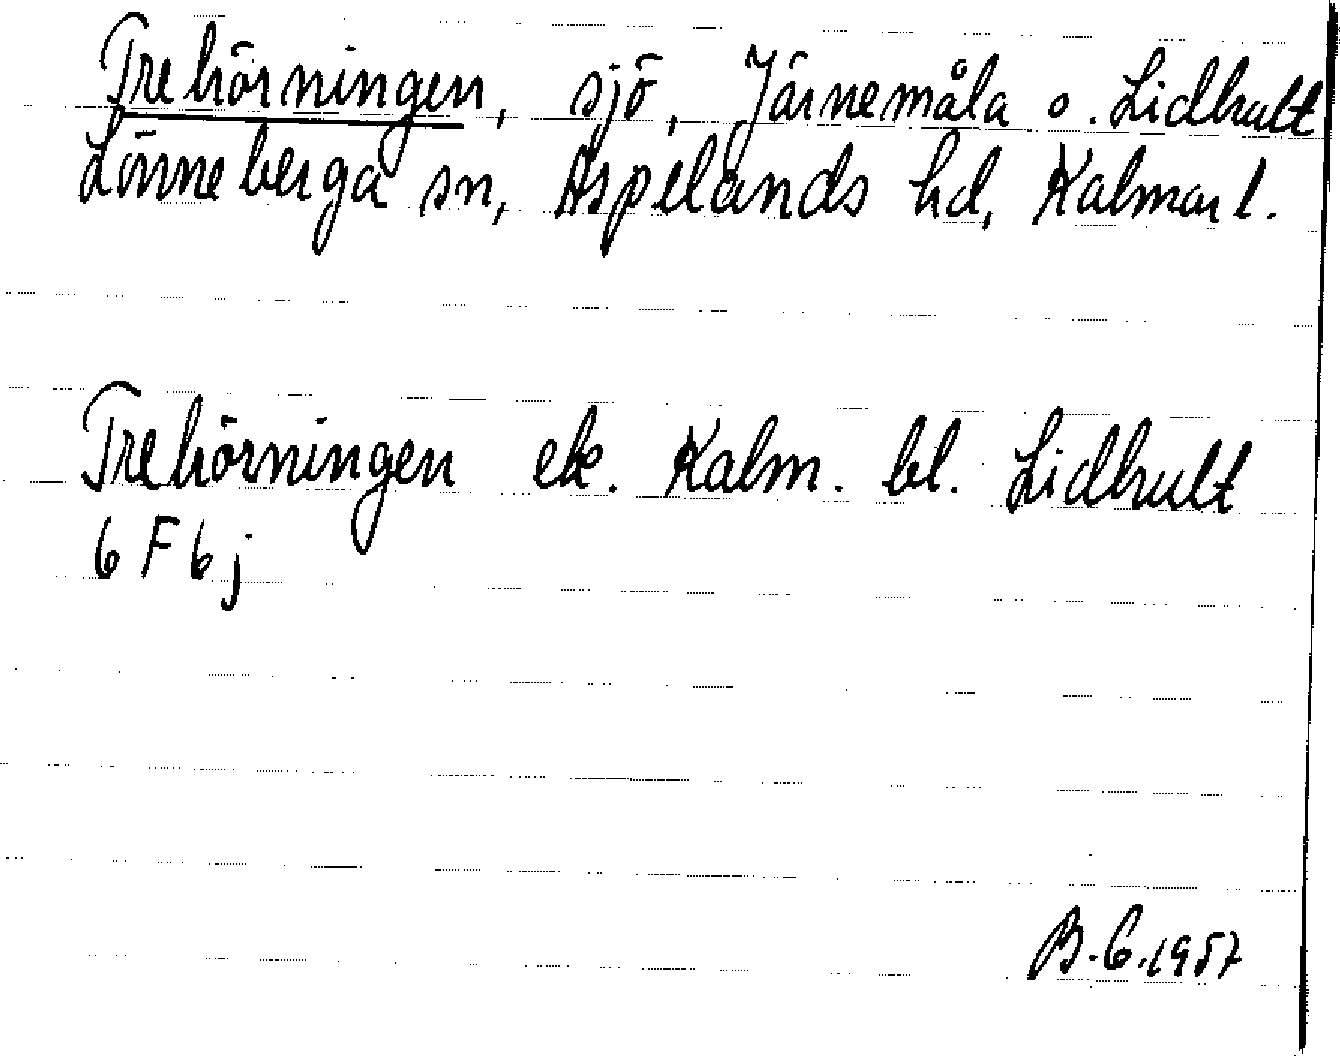 Trehörningen, sjö, Järnemåla o. Lidhult
Lönneberga sn, Aspelands hd, Kalmar l.
Trehörningen ek. Kalm. bl. Lidhult
6 F 6 j
B.C. 1957